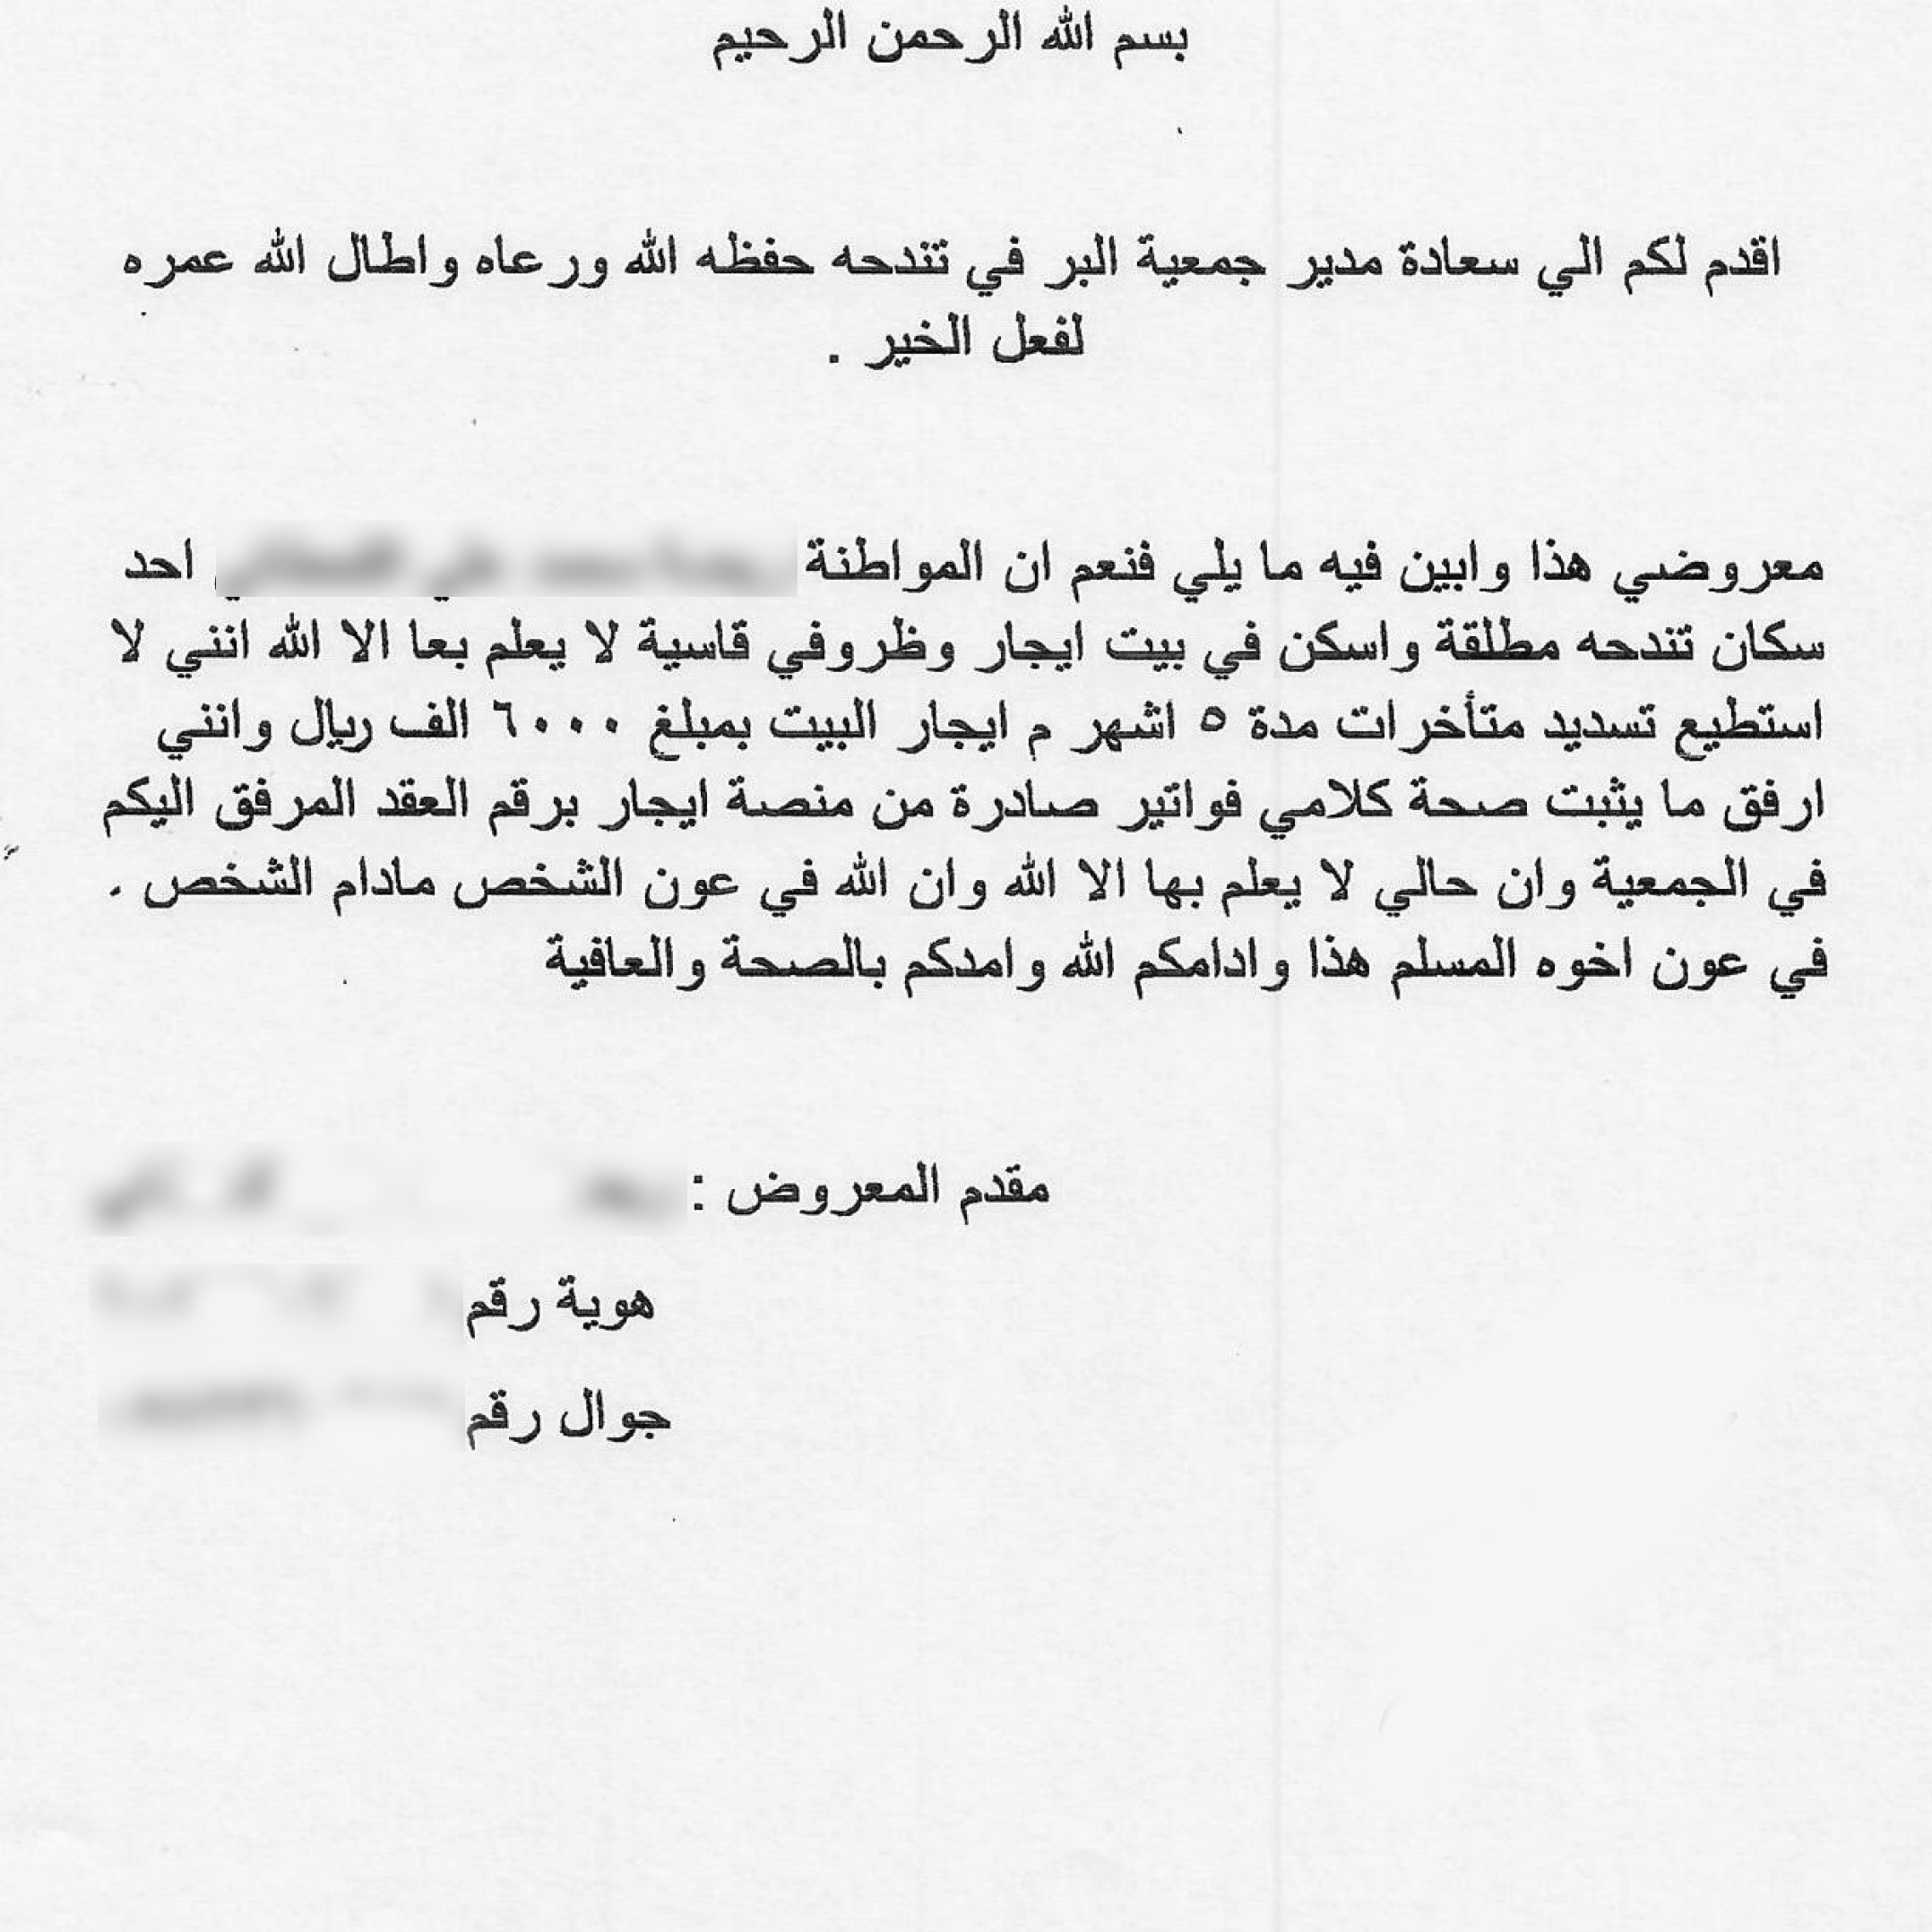 بسم الله الرحمن الرحيم
اقدم لكم الي سعادة مدير جمعية البر في تندحه حفظه الله ورعاه واطال الله عمره
لفعل الخير .
معروضي هذا وابين فيه ما يلي فنعم ان المواطنة احد
سكان تندحه مطلقة واسكن في بيت ايجار وظروفي قاسية لا يعلم بعا الا الله انني لا
استطيع تسديد متأخرات مدة ٥ اشهر م ايجار البيت بمبلغ ٦٠٠٠ الف ريال وانني
ارفق ما يثبت صحة كلامي فواتير صادرة من منصة ايجار برقم العقد المرفق اليكم
في الجمعية وان حالي لا يعلم بها الا الله وان الله في عون الشخص مادام الشخص .
في عون اخوه المسلم هذا وادامكم الله وامدكم بالصحة والعافية
مقدم المعروض :
هوية رقم
جوال رقم